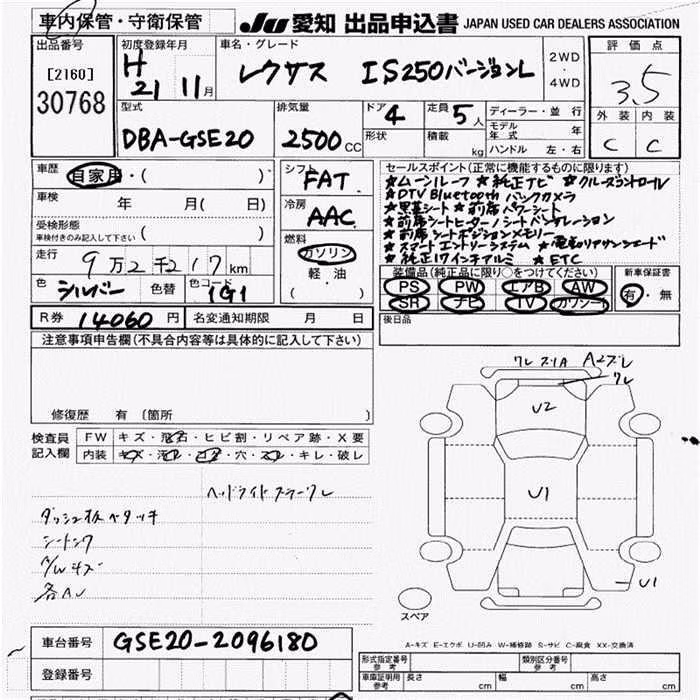 車内保管・守衛保管 JU 愛知 出品申込書 JAPAN USED CAR DEALERS ASSOCIATION
出品番号 [2160] 30768
初度登録年月 H 21 11月
車名・グレード レクサス IS250バージョンL
2WD・4WD
評価点 3.5
外装 内装
C C
型式 DBA-GSE20
排気量 2500CC
ドア 4
形状
定員 5人
積載 kg
ディーラー・並行
モデル年式 年
ハンドル 左・右
車歴 自家用・( )
車検 年 月( 日)
受検形態
車検付きのみ記入して下さい ( )
走行 9万2千217km
色 シルバー 色替 色コード 1G1
シフト FAT
冷房 AAC
燃料 ガソリン
軽・油
( )
セールスポイント(正常に機能するものに限ります)
★ムーンルーフ ★純正ナビ ★クルーズコントロール
★DTV Bluetooth バックカメラ
★黒革シート ★前席パワーシート
★前席シートヒーター/シートベンチレーション
★前席シートポジションメモリー
★スマートエントリーシステム ★電動リアサンシェード
★純正17インチアルミ ★ETC
装備品(純正品に限り○をつけてください)
PS PW エアB AW
SR ナビ TV カワシート
新車保証書
有・無
後日品
R券 14060円 名変通知期限 月 日
注意事項申告欄(不具合内容等は具体的に記入して下さい)
修復歴 有〔箇所 〕
検査員記入欄
FW キズ・飛石・ヒビ割・リペア跡・X要
内装 キズ・汚レ・コゲ・穴・スレ・キレ・破レ
ヘッドライト スラーワレ
ダッシュ板ベタツキ
A/Wキズ
各AU
ワレ ズリA A2ズレ
ワレ
U2
U1
U1
スペア
A-キズ E-エクボ U-凹み W-補修跡 S-サビ C-腐食 XX-交換済
車台番号 GSE20-2096180
登録番号
形式指定番号 参考 類別区分番号 参考
車庫証明用 参考 長さ cm 幅 cm 高さ cm